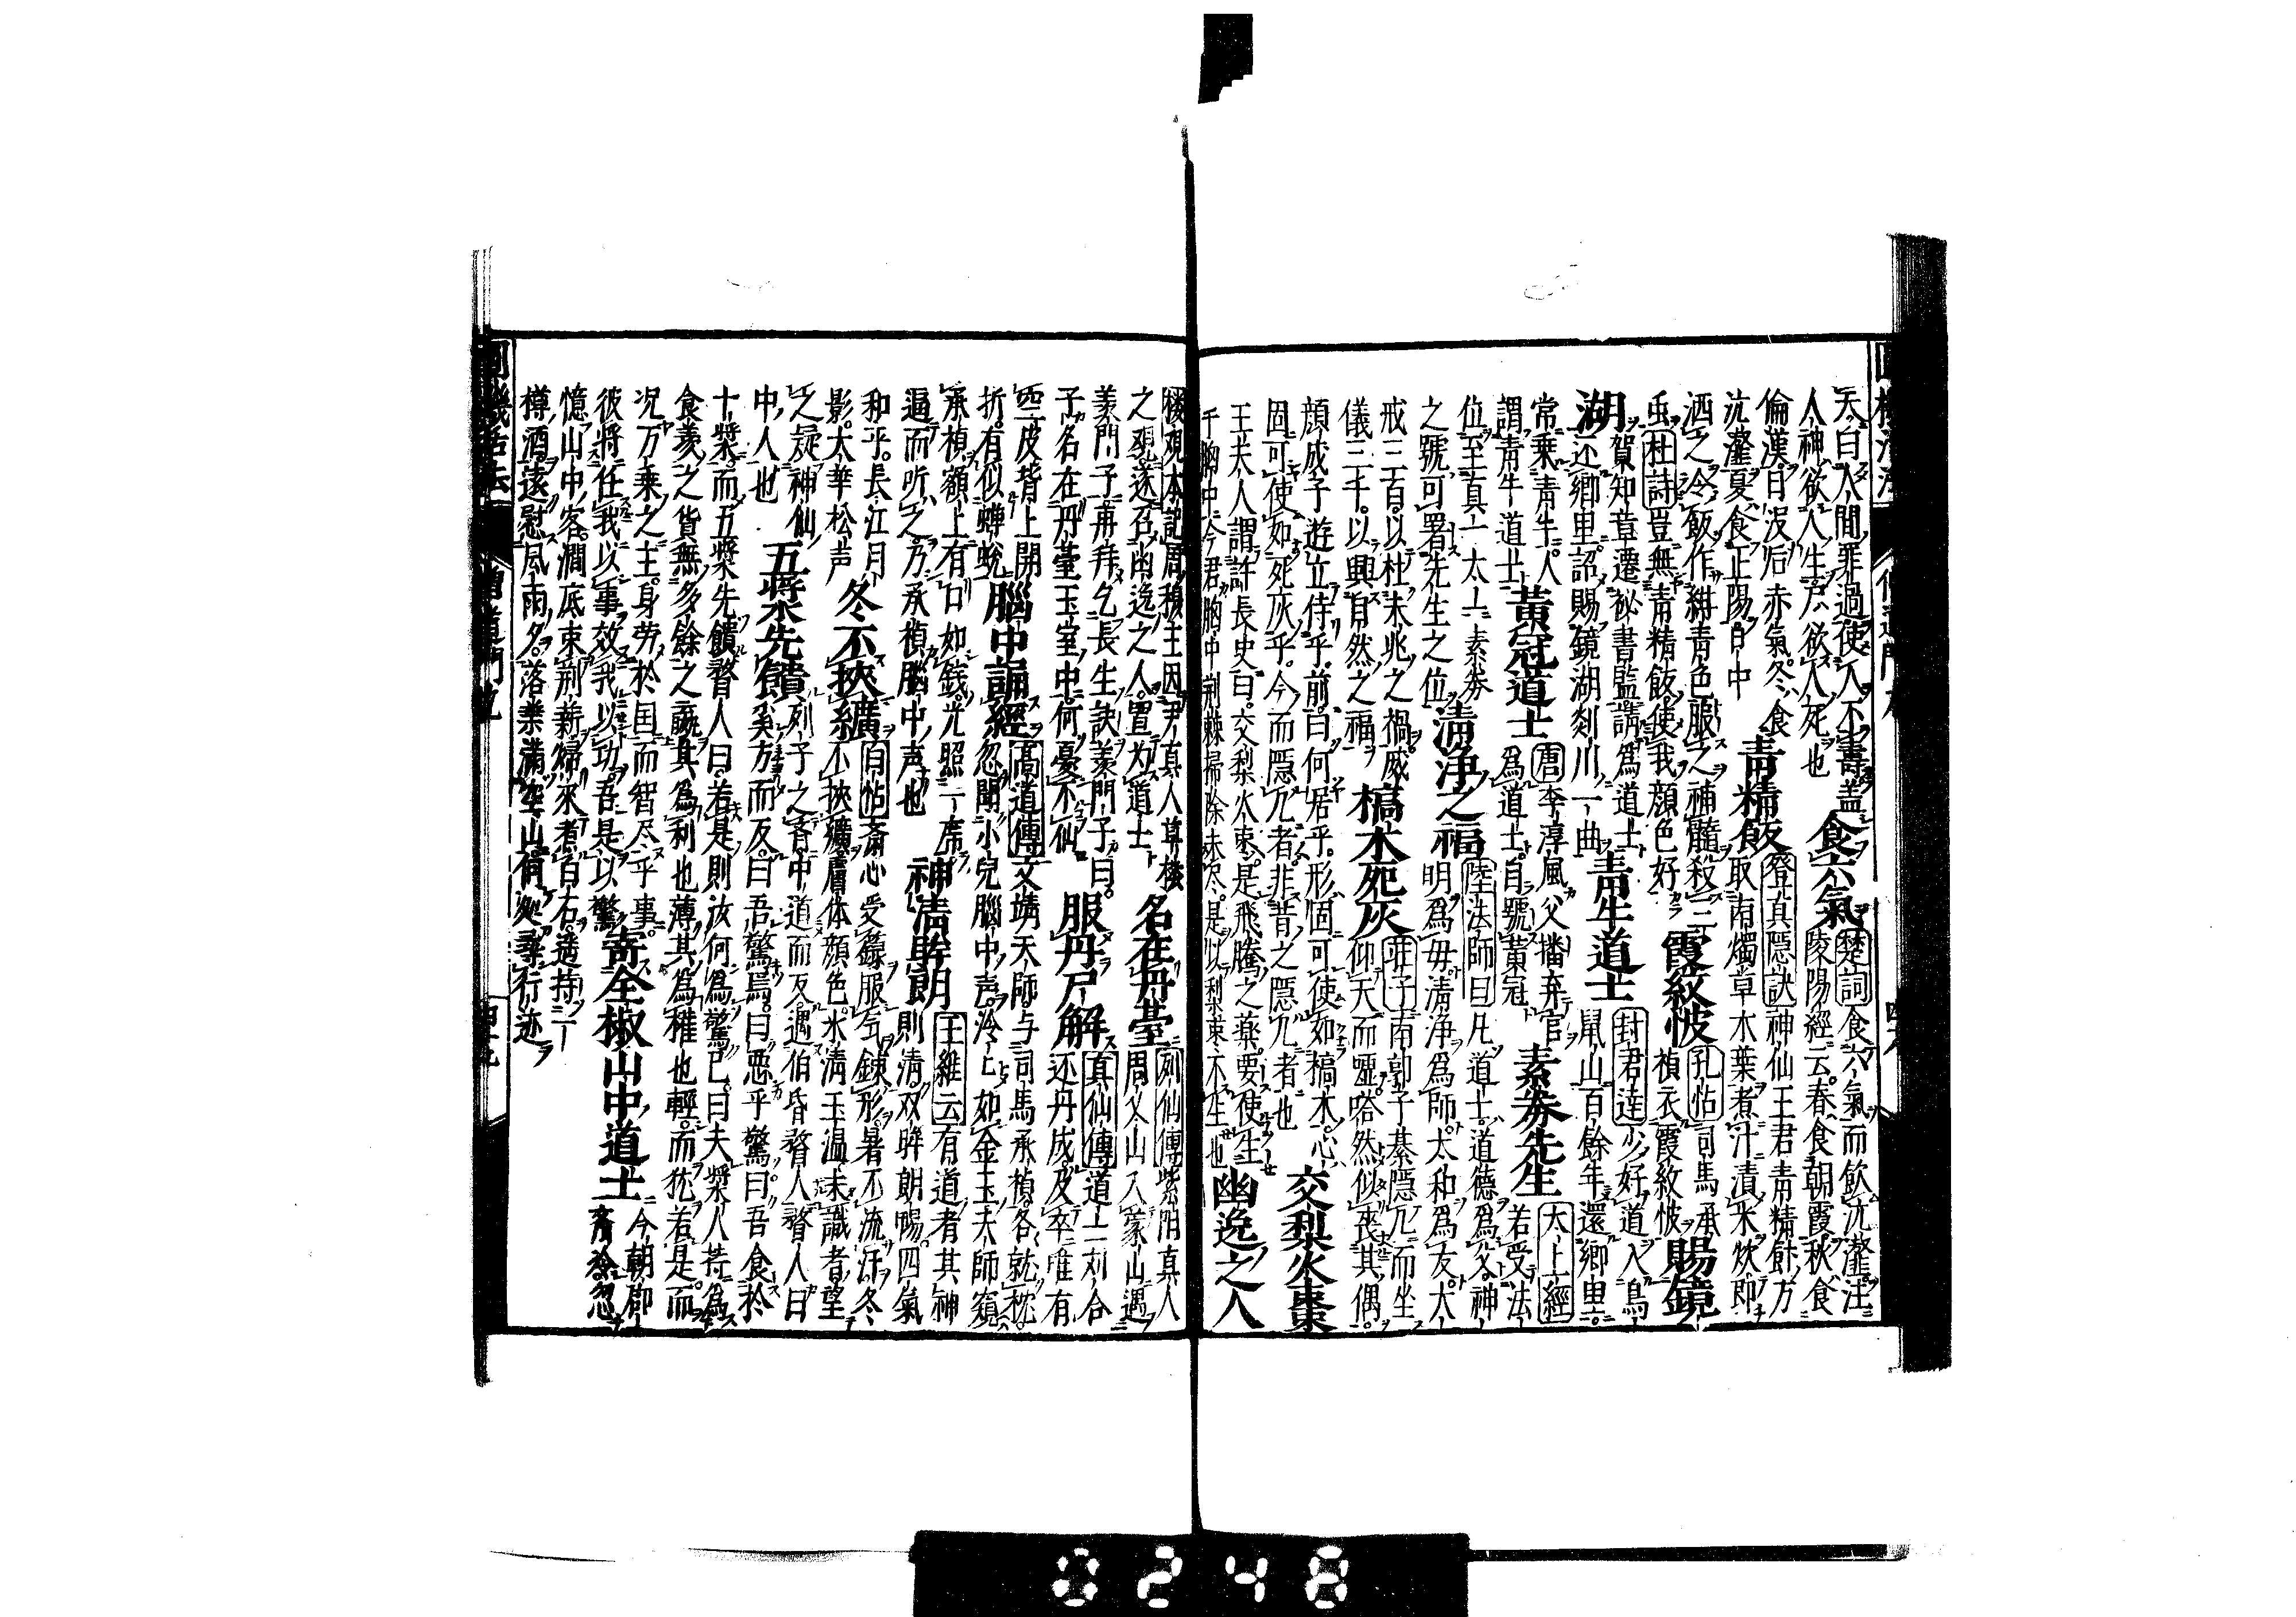 天曰人間罪過使人不壽盖食六氣楚詞食六氣而飲沆瀣注
人神欲人生尸欲人死也 陵陽經云春食朝霞秋食
倫漢日沒后赤氣冬食
沆瀣夏食正陽日中 青精飯登真隱訣神仙王君青精飯方
取南燭草木葉煮汁漬米炊即
洒之冷飯作紺青色服之補髓殺三
虫杜詩豈無青精飯使我顏色好 霞紋帔孔帖司馬承
禎衣霞紋帔 賜鏡
湖賀知章遷秘書監請爲道士
还鄉里詔賜鏡湖剡川一曲 青牛道士封君達少好道入鳥
鼠山百餘年還鄉里
常乘青牛人
謂青牛道士 黃冠道士唐李淳風父播弃官
爲道士自號黃冠 素券先生太上經
若受法
位至真一太上素券
之號可署先生之位 清浄之福陸法師曰凡道士道德爲父神
明爲母清浄爲師太和爲友大
戒三百以杜未兆之禍威
儀三千以興自然之福 槁木死灰莊子南郭子綦隱几而坐
仰天而噓嗒然似喪其偶
顏成子遊立侍乎前曰何居乎形固可使如槁木心
固可使如死灰乎今而隱几者非昔之隱几者也 交梨火棗
王夫人謂許長史曰交梨火棗是飛騰之藥要使生
千胸中今君胸中荆棘掃除未尽是以梨棗不生也 幽逸之人
楼观本記周穆王因尹真人草楼
之观遂召幽逸之人置为道士 名在丹臺列仙傳紫阳真人
周义山入蒙山遇
羡門子再拜乞長生訣羡門子曰
子名在丹臺玉室中何憂不仙 服丹尸解真仙傳道士刘合
还丹成及卒唯有
空皮背上開
折有似蝉蛻 腦中誦經高道傳文靖天師与司馬承禎各就枕
忽聞小兒腦中声泠〻如金玉夫師窺
承楨額上有日如錢光照一席
逼而听之乃承楨腦中声也 神清眸朗王維云有道者其神
則清双眸朗暢四氣
和乎長江月
影太華松声 冬不挾纊白帖斎心受籙服气錬形暑不流汗冬
不挾纊膚体顏色氷清玉温未識者望
之疑神仙
中人也 五漿先饋列子之斉中道而反遇伯昏瞀人瞀人曰
奚方而反曰吾驚焉曰惡乎驚曰吾食於
十漿而五漿先饋瞀人曰若是則汝何爲驚已曰夫漿人特爲
食羹之貨無多餘之贏其爲利也薄其爲権也輕而犹若是而
况万乘之主身劳於国而智尽乎事
彼將任我以事效我以功吾是以驚 寄全椒山中道士今朝郡
斉冷忽
憶山中客澗底束荆薪歸來煮白石遥持一
樽酒遠慰風雨夕落葉满空山何処尋行迹
僧道門九
0248